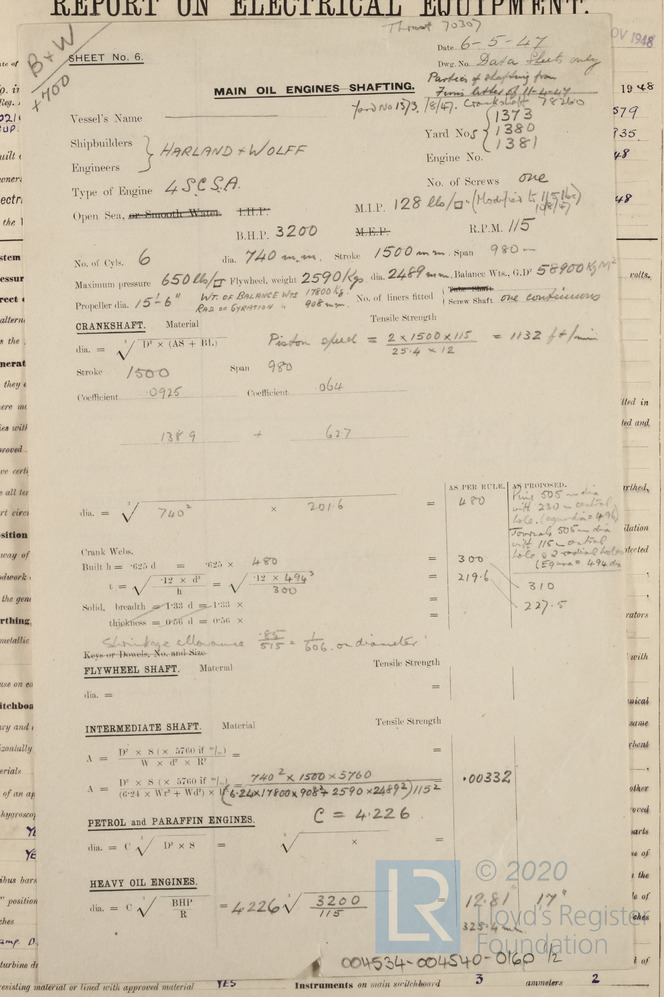 REPORT ON ELECTRICAL EQUIPMENT.
Thrust 70307
B+W
+700
SHEET No. 6.
Date 6-5-47
NOV 1948
Dwg. No. Data Sheets only
Particrs of shafting from
Firms letter of 11-4-47
MAIN OIL ENGINES SHAFTING.
Yard No 1373, /8/47. Crankshaft 78260
Vessel's Name
Yard Nos { 1373
1380
1381
Shipbuilders
Engineers } HARLAND + WOLFF
Engine No.
Type of Engine 4 S.C.S.A.
No. of Screws one
Open Sea, or Smooth Water I.H.P. M.I.P. 128 lbs/□" (Modified to 115 lbs)
B.H.P. 3200 M.E.P. R.P.M. 115
No. of Cyls. 6 dia. 740 m.m. Stroke 1500 mm. Span 980 m
Maximum pressure 650 lbs/□ Flywheel, weight 2590 Kgs dia. 2489 mm, Balance Wts., G.D² 58900 Kg M²
Propeller dia. 15'-6" WT. OF BALANCE WTS 17800 Kg. No. of liners fitted { Tube Shaft
RAD OF GYRATION " 908 mm. Screw Shaft one continuous
CRANKSHAFT. Material Tensile Strength
dia. = ∛ D² × (AS + BL) Piston speed = 2 × 1500 × 115 / 25.4 × 12 = 1132 ft/min
Stroke 1500 Span 980
Coefficient .0925 Coefficient .064
138.9 + 62.7
AS PER RULE. AS PROPOSED.
dia. = ∛ 740² × 201.6 = 480
Pins 505 m dia
with 230 m central
hole. (equiv dia = 496)
Journals 505 m dia
with 115 m central
hole & 2 radial holes
(Equiv = 494 dia
Crank Webs.
Built h = .625 d = .625 × 480 = 300 310
t = √ .12 × d³ / h = √ .12 × 494³ / 300 = 219.6 227.5
Solid, breadth = 1.33 d = 1.33 × =
thickness = 0.56 d = 0.56 × =
Shrinkage allowance .85 / 515 = 1 / 606. on diameter
Keys or Dowels, No. and Size
FLYWHEEL SHAFT. Material Tensile Strength
dia. = =
INTERMEDIATE SHAFT. Material Tensile Strength
A = D² × S (× 5760 if m/m) / W × d² × R² = =
A = D² × S (× 5760 if m/m) / (6.24 × Wr² + Wd²) × R² = 740² × 1500 × 5760 / (6.24×17800×908² + 2590×2489²) 115² = .00332
C = 4.226
PETROL and PARAFFIN ENGINES.
dia. = C ∛ D² × S = ∛ × =
HEAVY OIL ENGINES.
dia. = C ∛ BHP / R = 4.226 ∛ 3200 / 115 = 12.81" 17"
325.4 mm
LR
© 2020
Lloyd's Register
Foundation
004534-004540-016P 1/2
esisting material or lined with approved material YES Instruments on main switchboard 3 ammeters 2